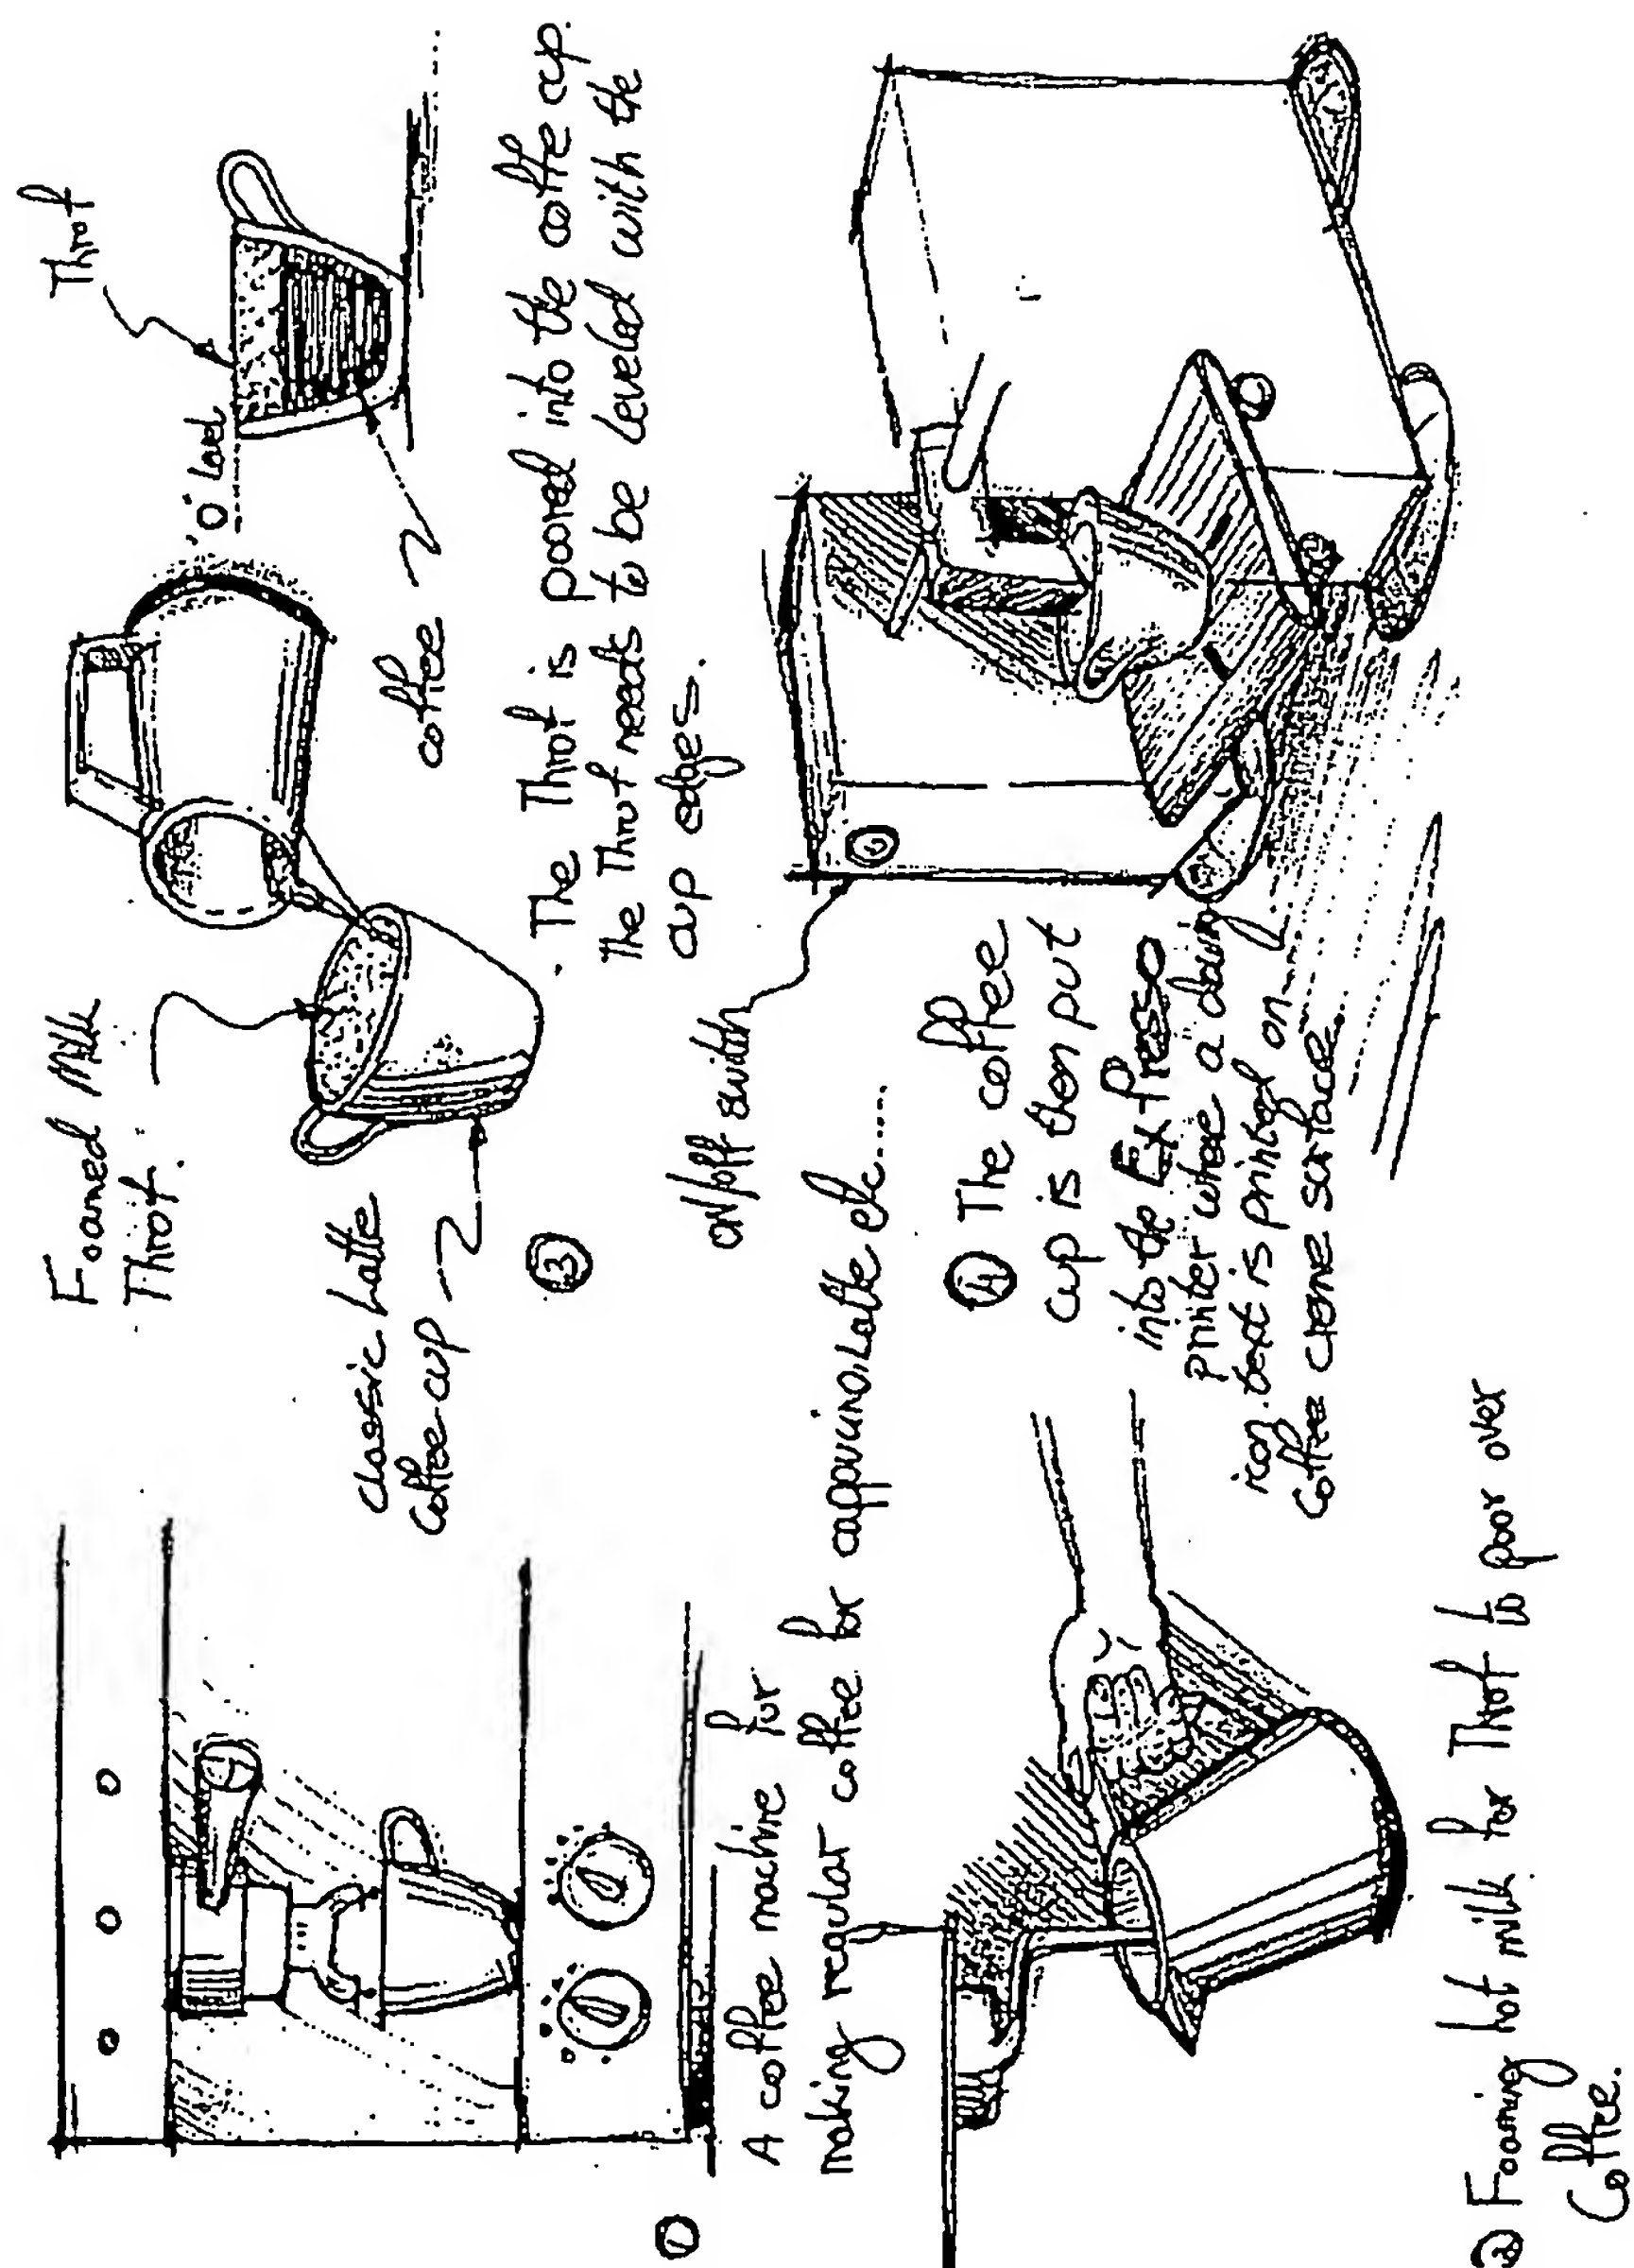 ①
A coffee machine for
making regular coffee for cappucino, Latte etc.....
② Foaming hot milk for Throt to poor over
Coffee.
Foamed Milk
Throt.
classic Latte
coffee cup
"0" Level
Throt
coffee
③
. The Throt is poored into the coffe cup.
the Throt needs to be leveled with the
cup edges.
on/off switch
④ The coffee
cup is then put
into the Expreso
printer whee a down
icon. text is printed on
coffee creme surface.